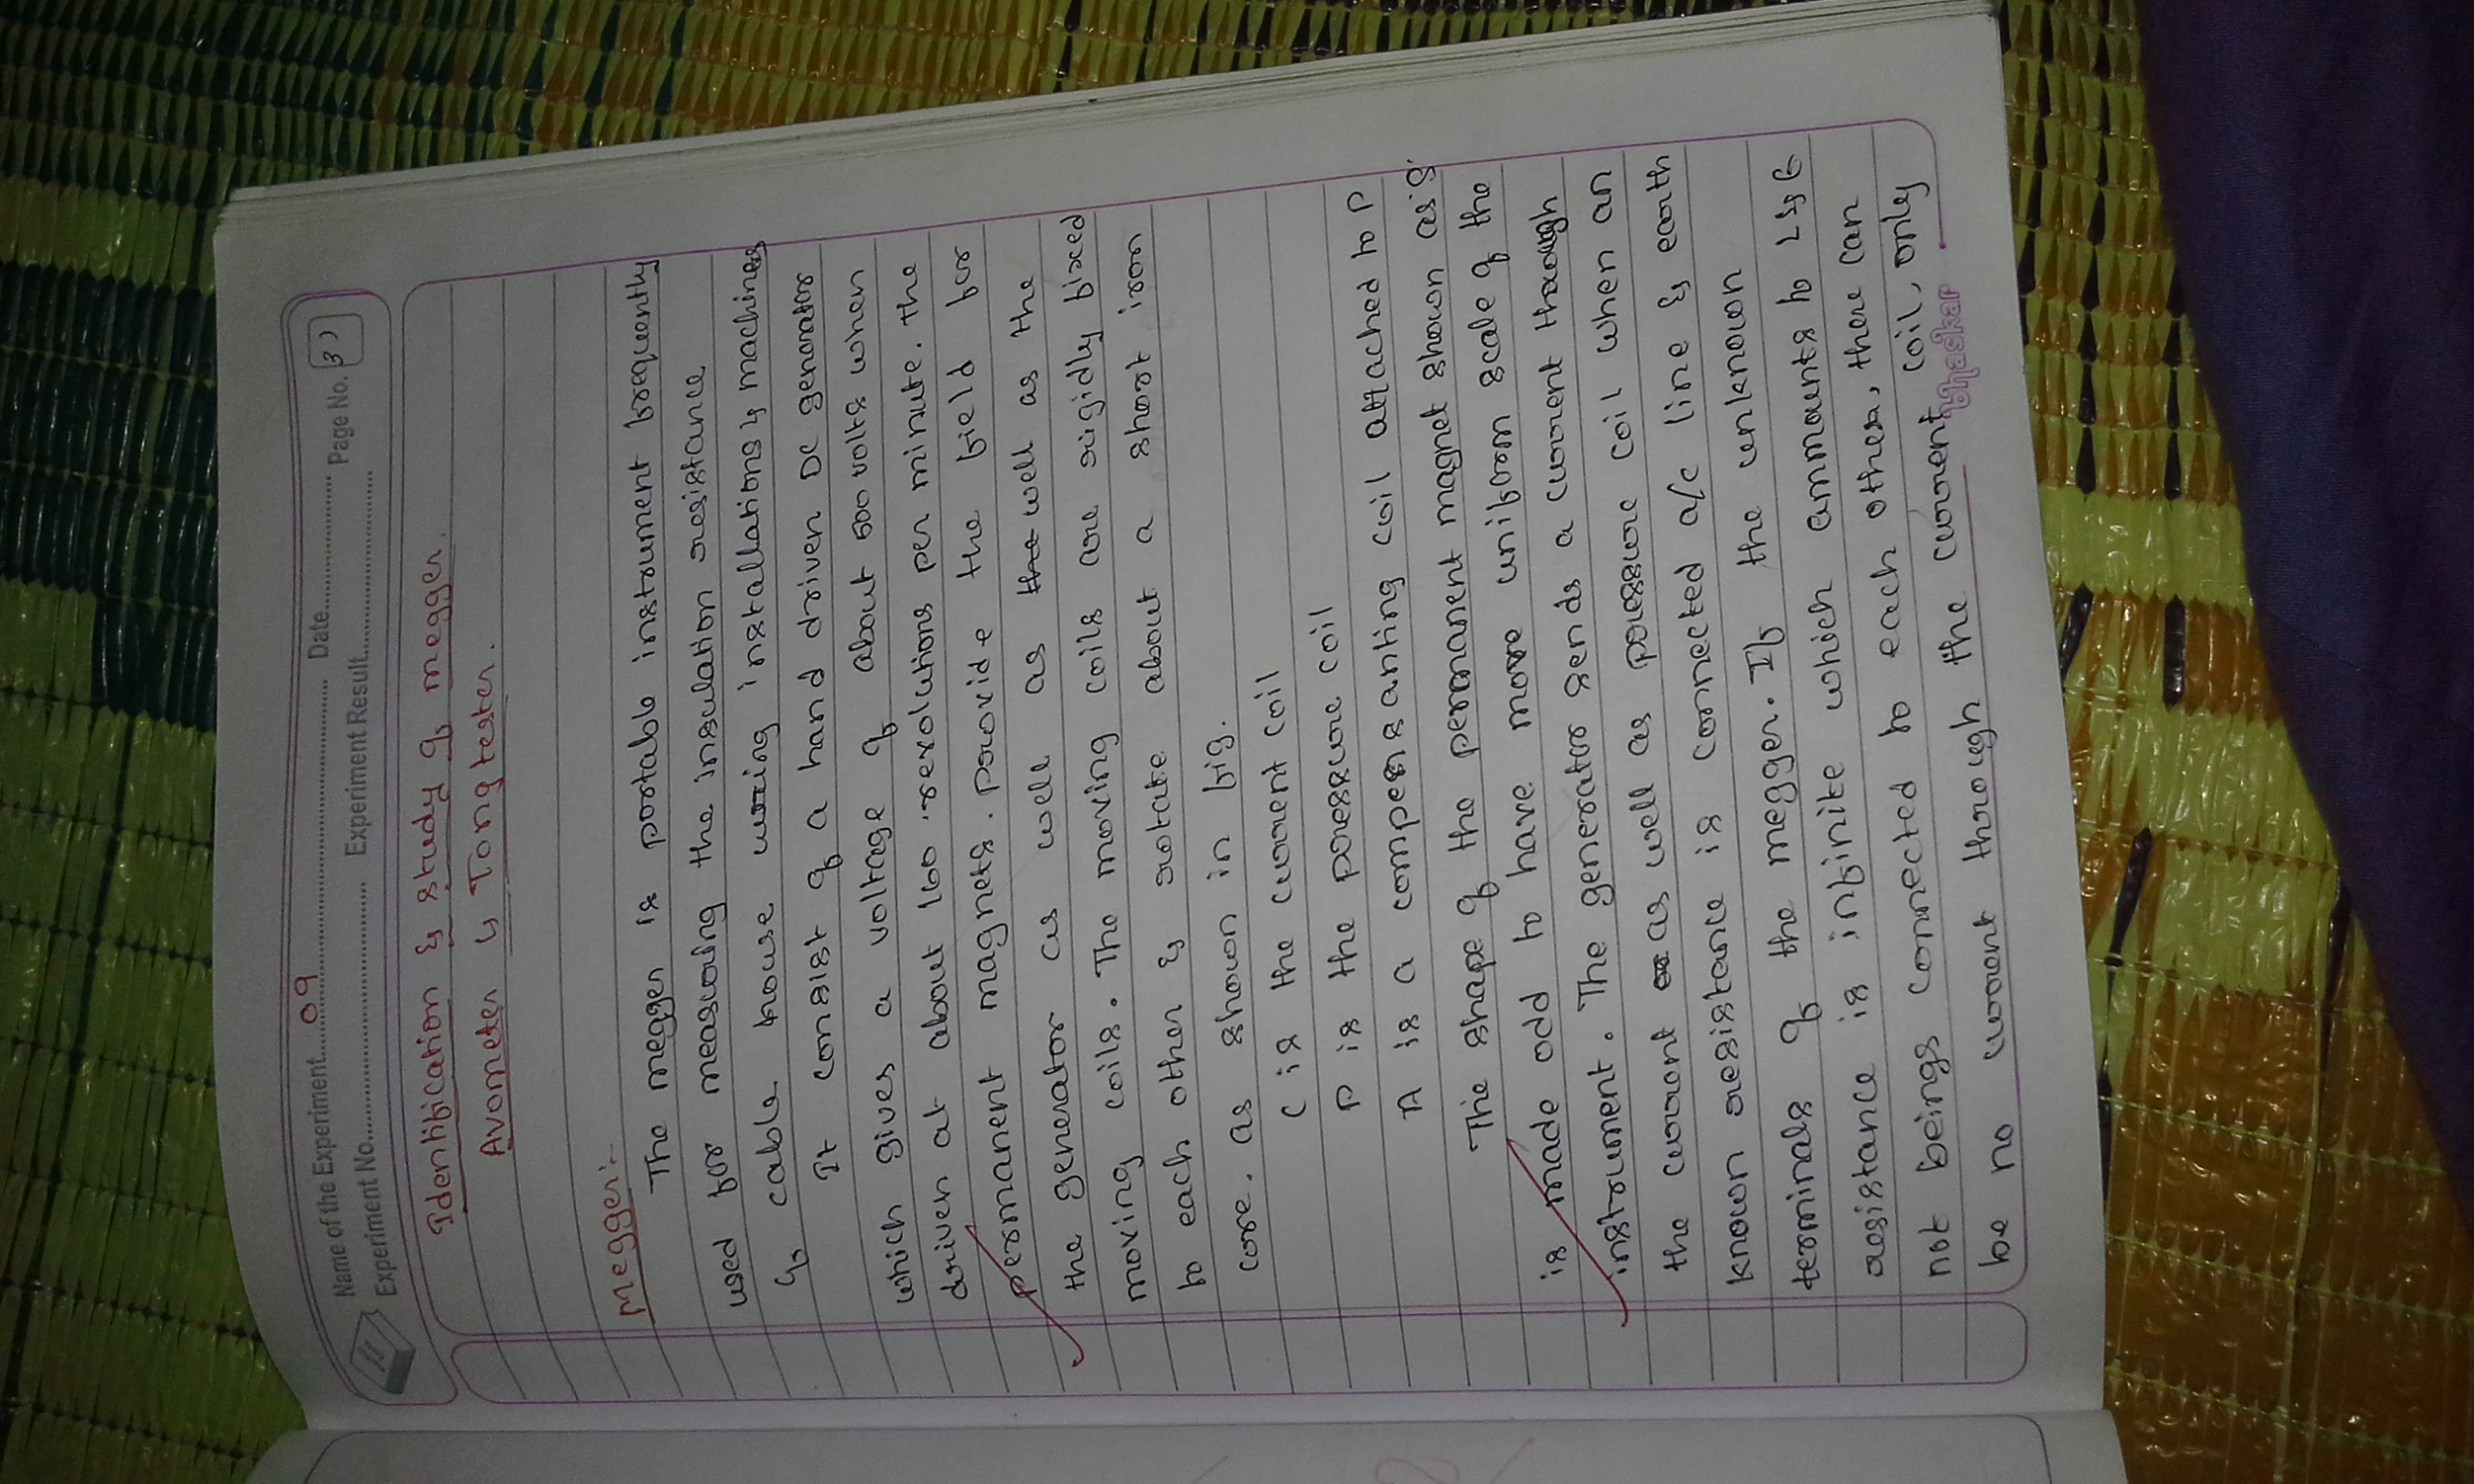 Name of the Experiment 09 Date Page No. 31
Experiment No. Experiment Result
Identification & study of megger.
Avometer & Tongtester.
Megger:-
The megger is portable instrument frequently
used for measuring the insulation resistance
of cable house wiring installations & machines
It consist of a hand driven DC generator
which gives a voltage of about 500 volts when
driven at about 160 revolutions per minute. The
permanent magnets. provide the field for
the generator as well as the well as the
moving coils. The moving coils are rigidly fixed
to each other & rotate about a short iron
core. as shown in fig.
C is the current coil
P is the pressure coil
A is a compensanting coil attached to P
The shape of the permanent magnet shown as S
is made odd to have more uniform scale of the
instrument. The generator sends a current through
the current as well as pressure coil when an
known resistance is connected a/c line & earth
terminals of the megger. If the unknown
resistance is infinite which ammounts of L & G
not beings connected to each other, there can
be no current through the current coil, only
Bhaskar